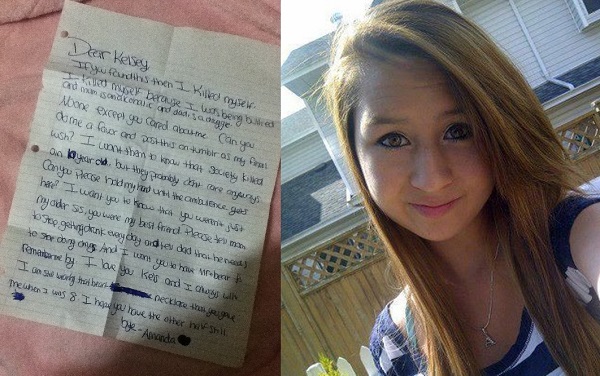 Dear Kelsey,
If you found this then I killed myself.
I killed myself because I was being bullied
and mom is an alcoholic and dad is a druggie.
None except you cared about me. Can you
do me a favor and post this on tumblr as my final
wish? I want them to know that society killed
an 10 year old, but they probably don't care anyways.
Can you please hold my hand until the ambulance gets
here? I want you to know that you weren't just
my older sis, you were my best friend. Please tell mom
to stop getting drunk every day and tell dad that he needs
to stop doing drugs. And I want you to have Mr. bear to
remember me by. I love you Kels and I always will
I am still wearing that best necklace that you gave
me when I was 8. I hope you have the other half still
bye - Amanda
A